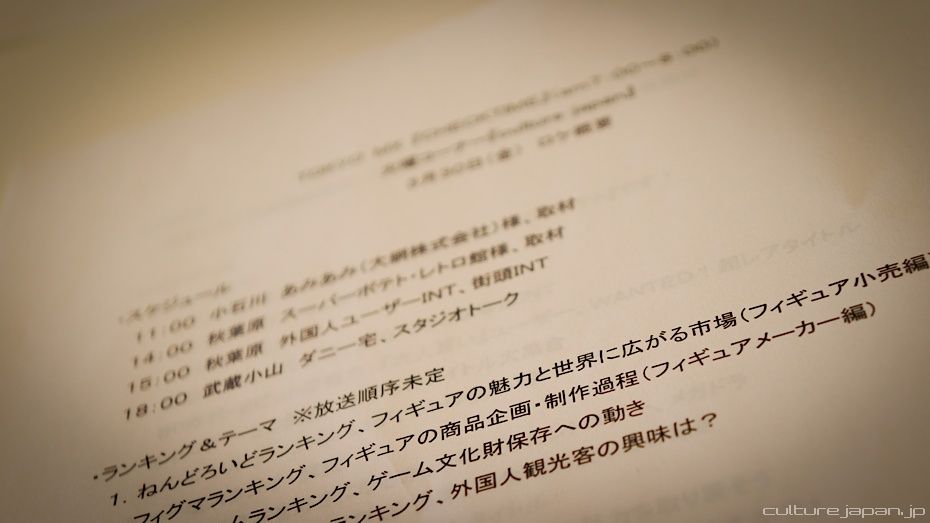 TOKYO MX 『CHECK TIME』(am7:00〜8:00)
『Culture Japan』
3月30日(金) ロケ概要
・スケジュール
11:00 小石川 あみあみ(大網株式会社)様、取材
14:00 秋葉原 スーパーポテト・レトロ館様、取材
15:00 秋葉原 外国人ユーザーINT、街頭INT
18:00 武蔵小山 ダニー宅、スタジオトーク
・ランキング&テーマ ※放送順序未定
1. ねんどろいどランキング、フィギュアの魅力と世界に広がる市場(フィギュア小売編)
フィグマランキング、フィギュアの商品企画・制作過程(フィギュアメーカー編)
ームランキング、ゲーム文化財保存への動き
ランキング、外国人観光客の興味は?
culture.japan.jp